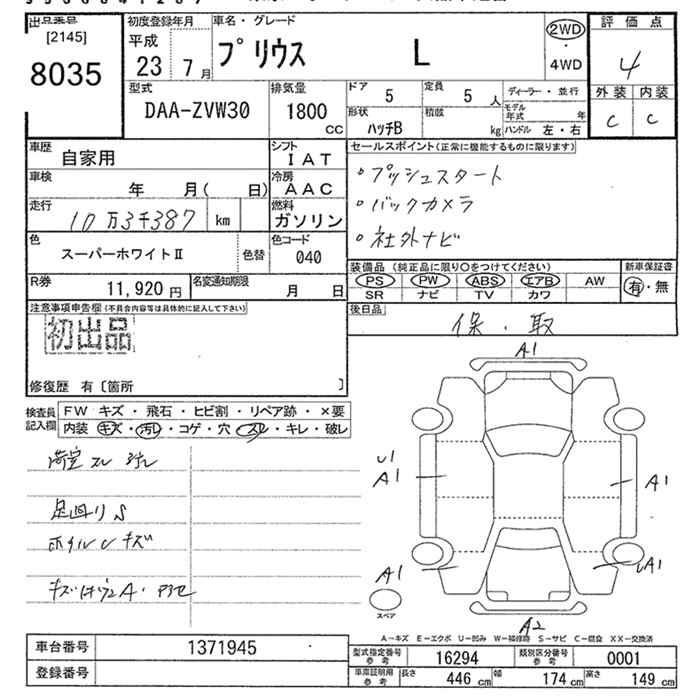 出品番号
[2145]
8035
初度登録年月
平成
23年7月
車名・グレード
プリウス L
2WD
・
4WD
評価点
4
外装 内装
C C
型式
DAA-ZVW30
排気量
1800
cc
ドア
5
定員
5人
形状
ハッチB
積載
kg
ディーラー・並行
モデル年式 年
ハンドル 左・右
車歴
自家用
シフト
IAT
車検
年 月( 日)
冷房
AAC
走行
10万3千387 km
燃料
ガソリン
色
スーパーホワイトⅡ
色替
色コード
040
R券
11,920円
名変通知期限
月 日
セールスポイント(正常に機能するものに限ります)
。プッシュスタート
。バックカメラ
。社外ナビ
装備品(純正品に限り○をつけてください)
PS PW ABS エアB AW
SR ナビ TV カワ
新車保証書
有・無
後日品
保・取
注意事項申告欄(不具合内容等は具体的に記入して下さい)
初出品
修復歴 有〔箇所 〕
検査員記入欄
FW キズ・飛石・ヒビ割・リペア跡・×要
内装 キズ・汚レ・コゲ・穴・スレ・キレ・破レ
足廻りS
ホイルキズ
A1
U1
A1
A1
A1
A1
A2
スペア
A-キズ E-エクボ U-凹み W-補修跡 S-サビ C-腐食 XX-交換済
車台番号
1371945
登録番号
型式指定番号
参考
16294
類別区分番号
参考
0001
車庫証明用
参考
長さ
446 cm
幅
174 cm
高さ
149 cm